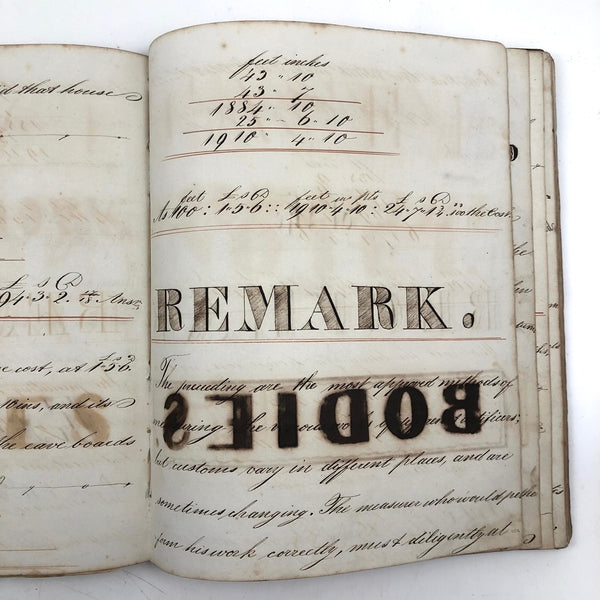 d that house
94·3·2
Ans
e cost, at 1·5·6.
and its
the eave boards
feet inches
43 " 10
43 " 7
1884 " 10
25 " 6 " 10
1910 " 4 " 10
feet £ s D feet in pts £ s D
As 100 : 1·5·6 :: 1910·4·10 : 24·7·1 the Cost
REMARK.
The preceding are the most approved methods of
measuring the various works of artificers:
but customs vary in different places, and are
sometimes changing. The measurer who would per
form his work correctly, must diligently at-
BODIES